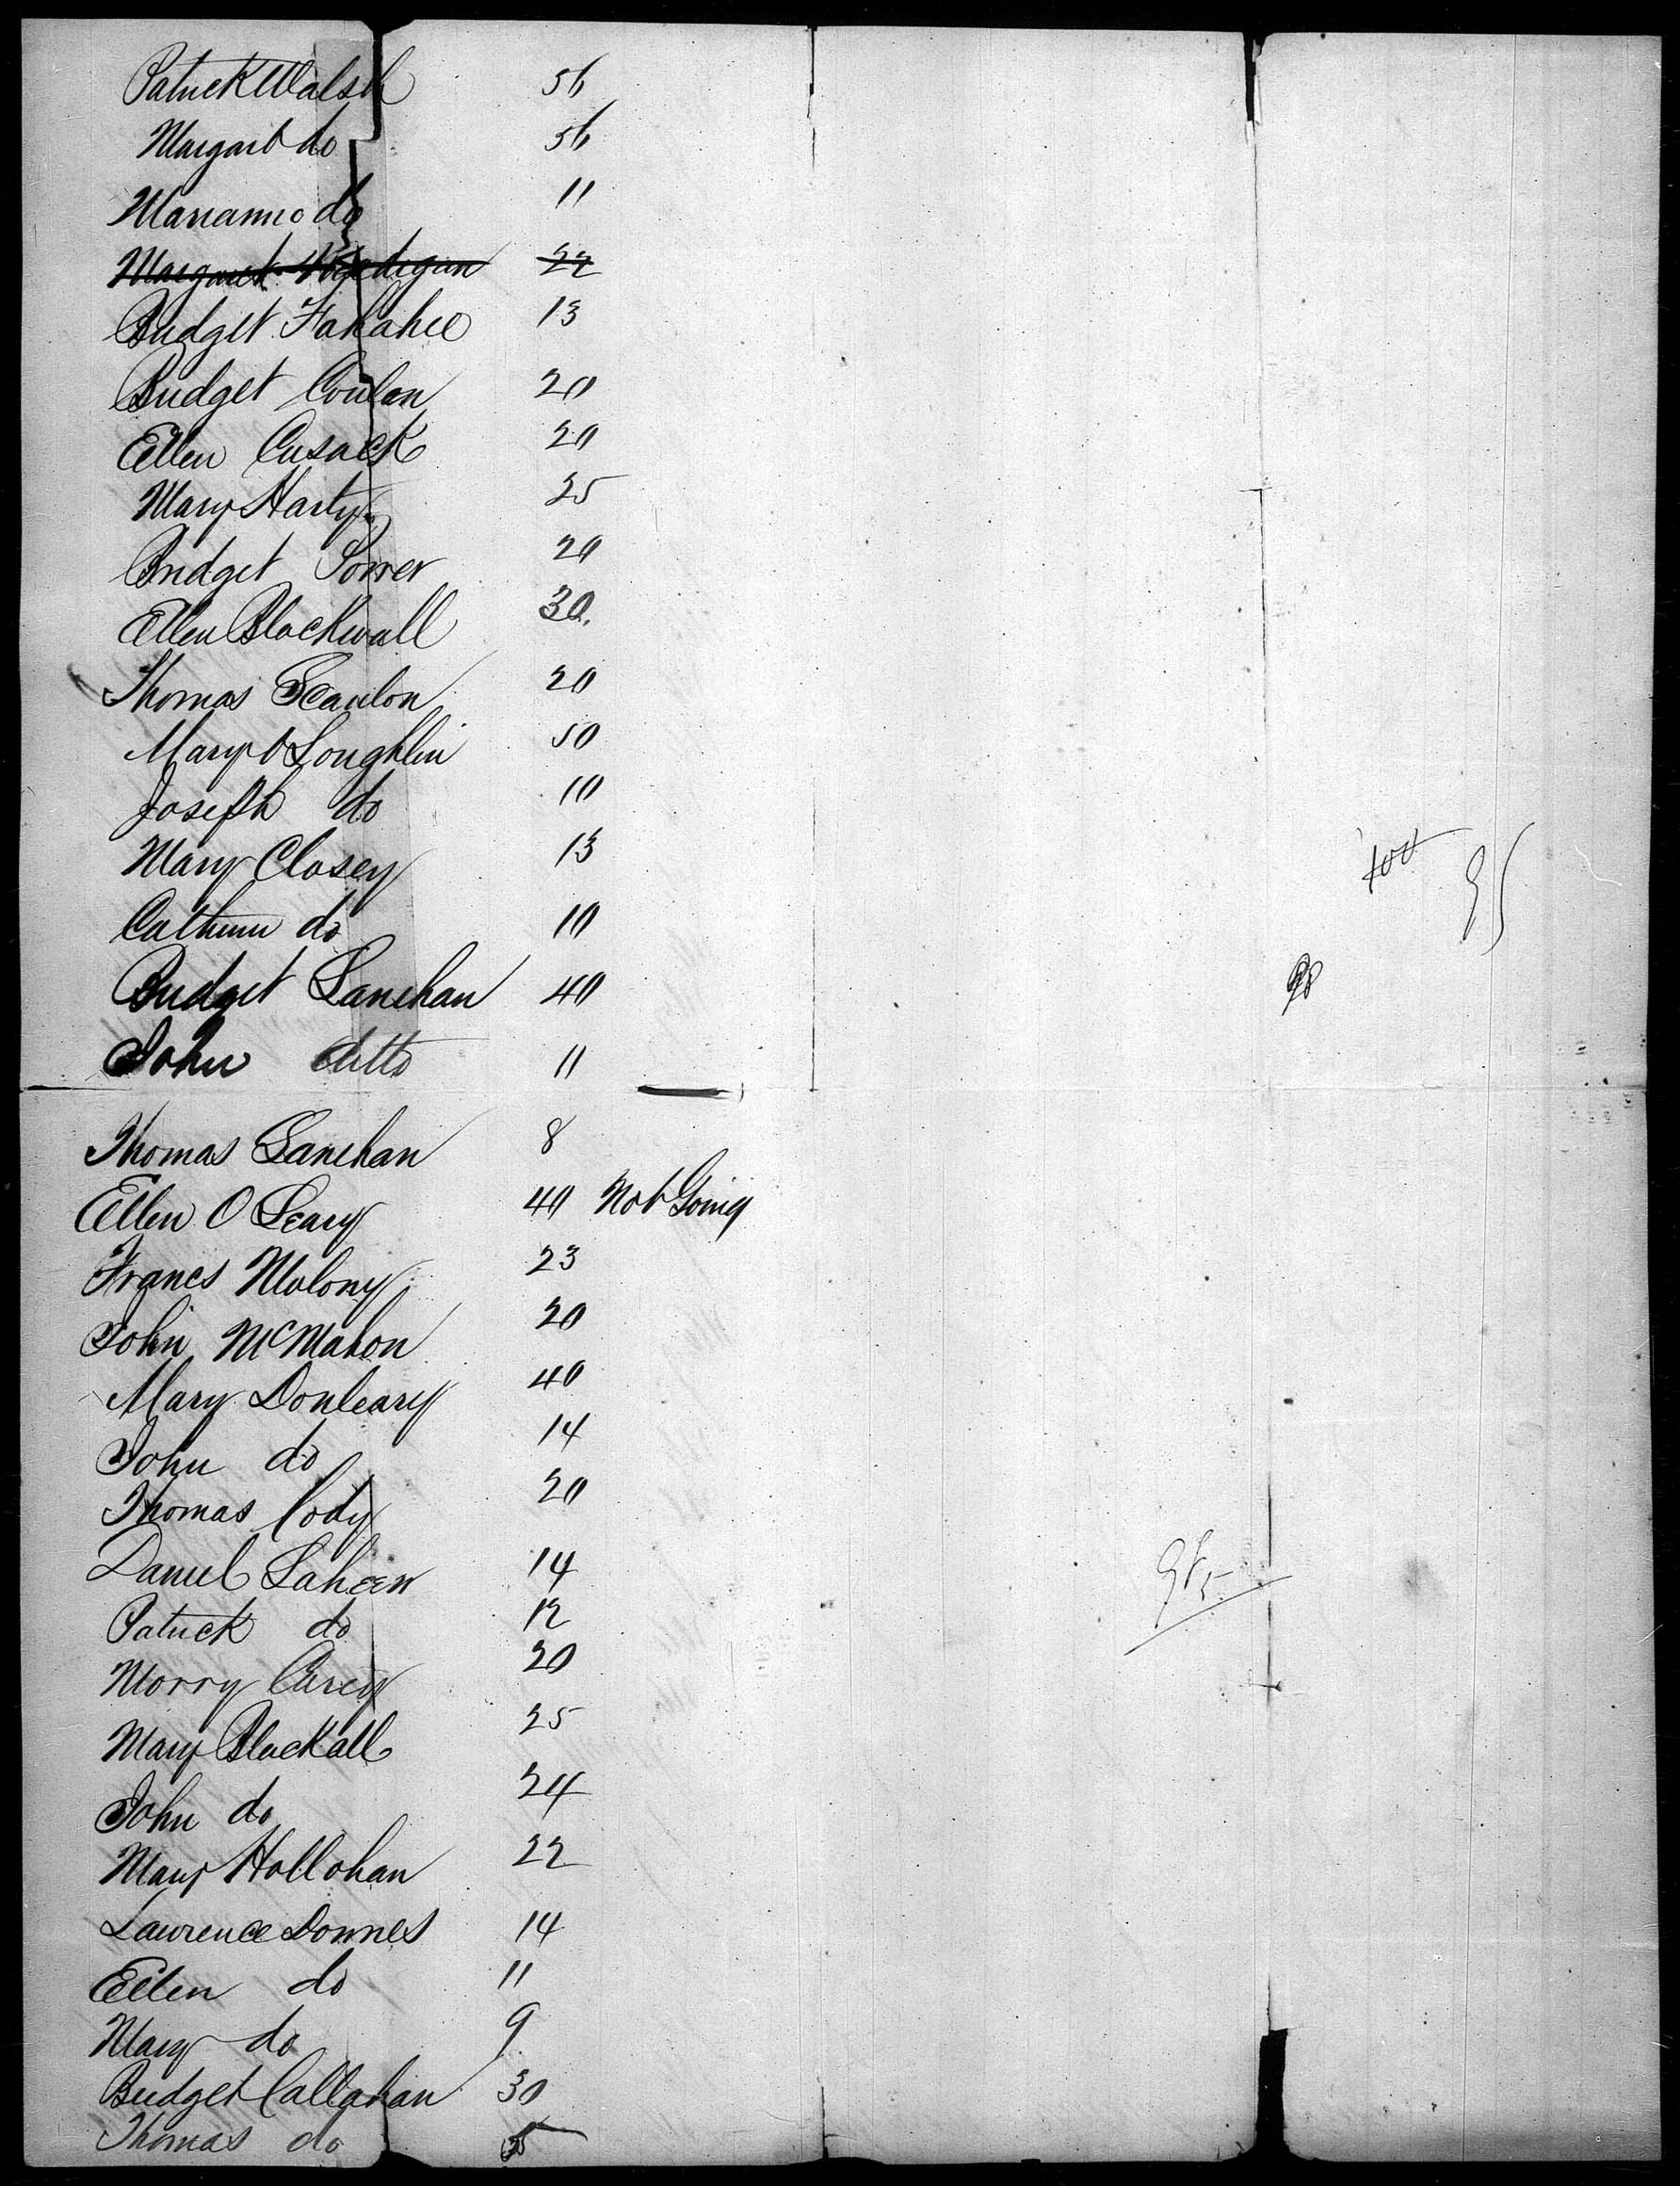 Patrick Walsh 56
Margart do 56
Marianne do 11
Margaret 22
Bridget Fahahee 13
Bridget Conlan 20
Ellen Cusack 20
Mary Harty 25
Bridget Power 20
Ellen Blackwall 30.
Thomas Scanlon 20
Mary O Loughlin 50
Joseph do 10
Mary Closey 13
Cathrine do 10
Bridget Lanehan 40
John ditto 11
Thomas Lanehan 8
Ellen O Leary 40 Not Going
Francs Molony 23
John McMahon 20
Mary Donleary 40
John do 14
Thomas Cody 20
Daniel Laheen 14
Patrick do 12
Morry Carey 20
Mary Blackall 25
John do 24
Mary Hollohan 22
Lawrence Downes 14
Ellen do 11
Mary do 9
Bridget Callahan 30
Thomas do
100
95
98